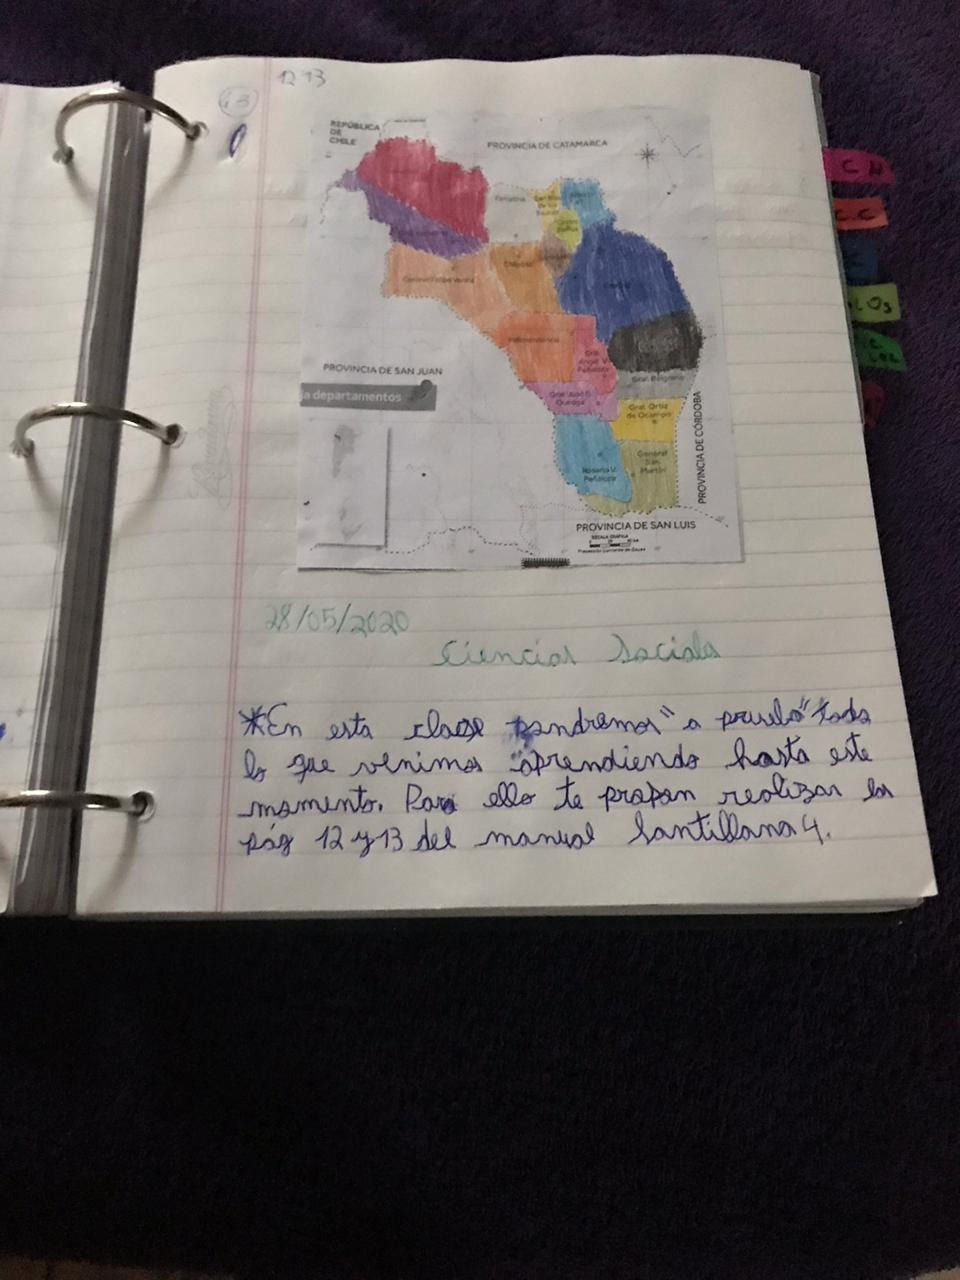 12 13
13
REPÚBLICA
DE
CHILE
PROVINCIA DE CATAMARCA
Famatina
San Blas
de los
Sauces
Castro
Barros
Chilecito
Coronel Felipe Varela
Capital
Independencia
Gral.
Ángel V.
Peñaloza
Gral. Belgrano
Gral. Juan F.
Quiroga
Gral. Ortiz
de Ocampo
Rosario V.
Peñaloza
General
San
Martín
PROVINCIA DE SAN JUAN
ja departamentos
PROVINCIA DE CÓRDOBA
PROVINCIA DE SAN LUIS
ESCALA GRÁFICA
28/05/2020
Ciencias Sociales
*En esta clase pondremos "a prueba" todo
lo que venimos aprendiendo hasta este
momento. Para ello te propon realizar las
pág 12 y 13 del manual Santillana 4.
C N
C.C